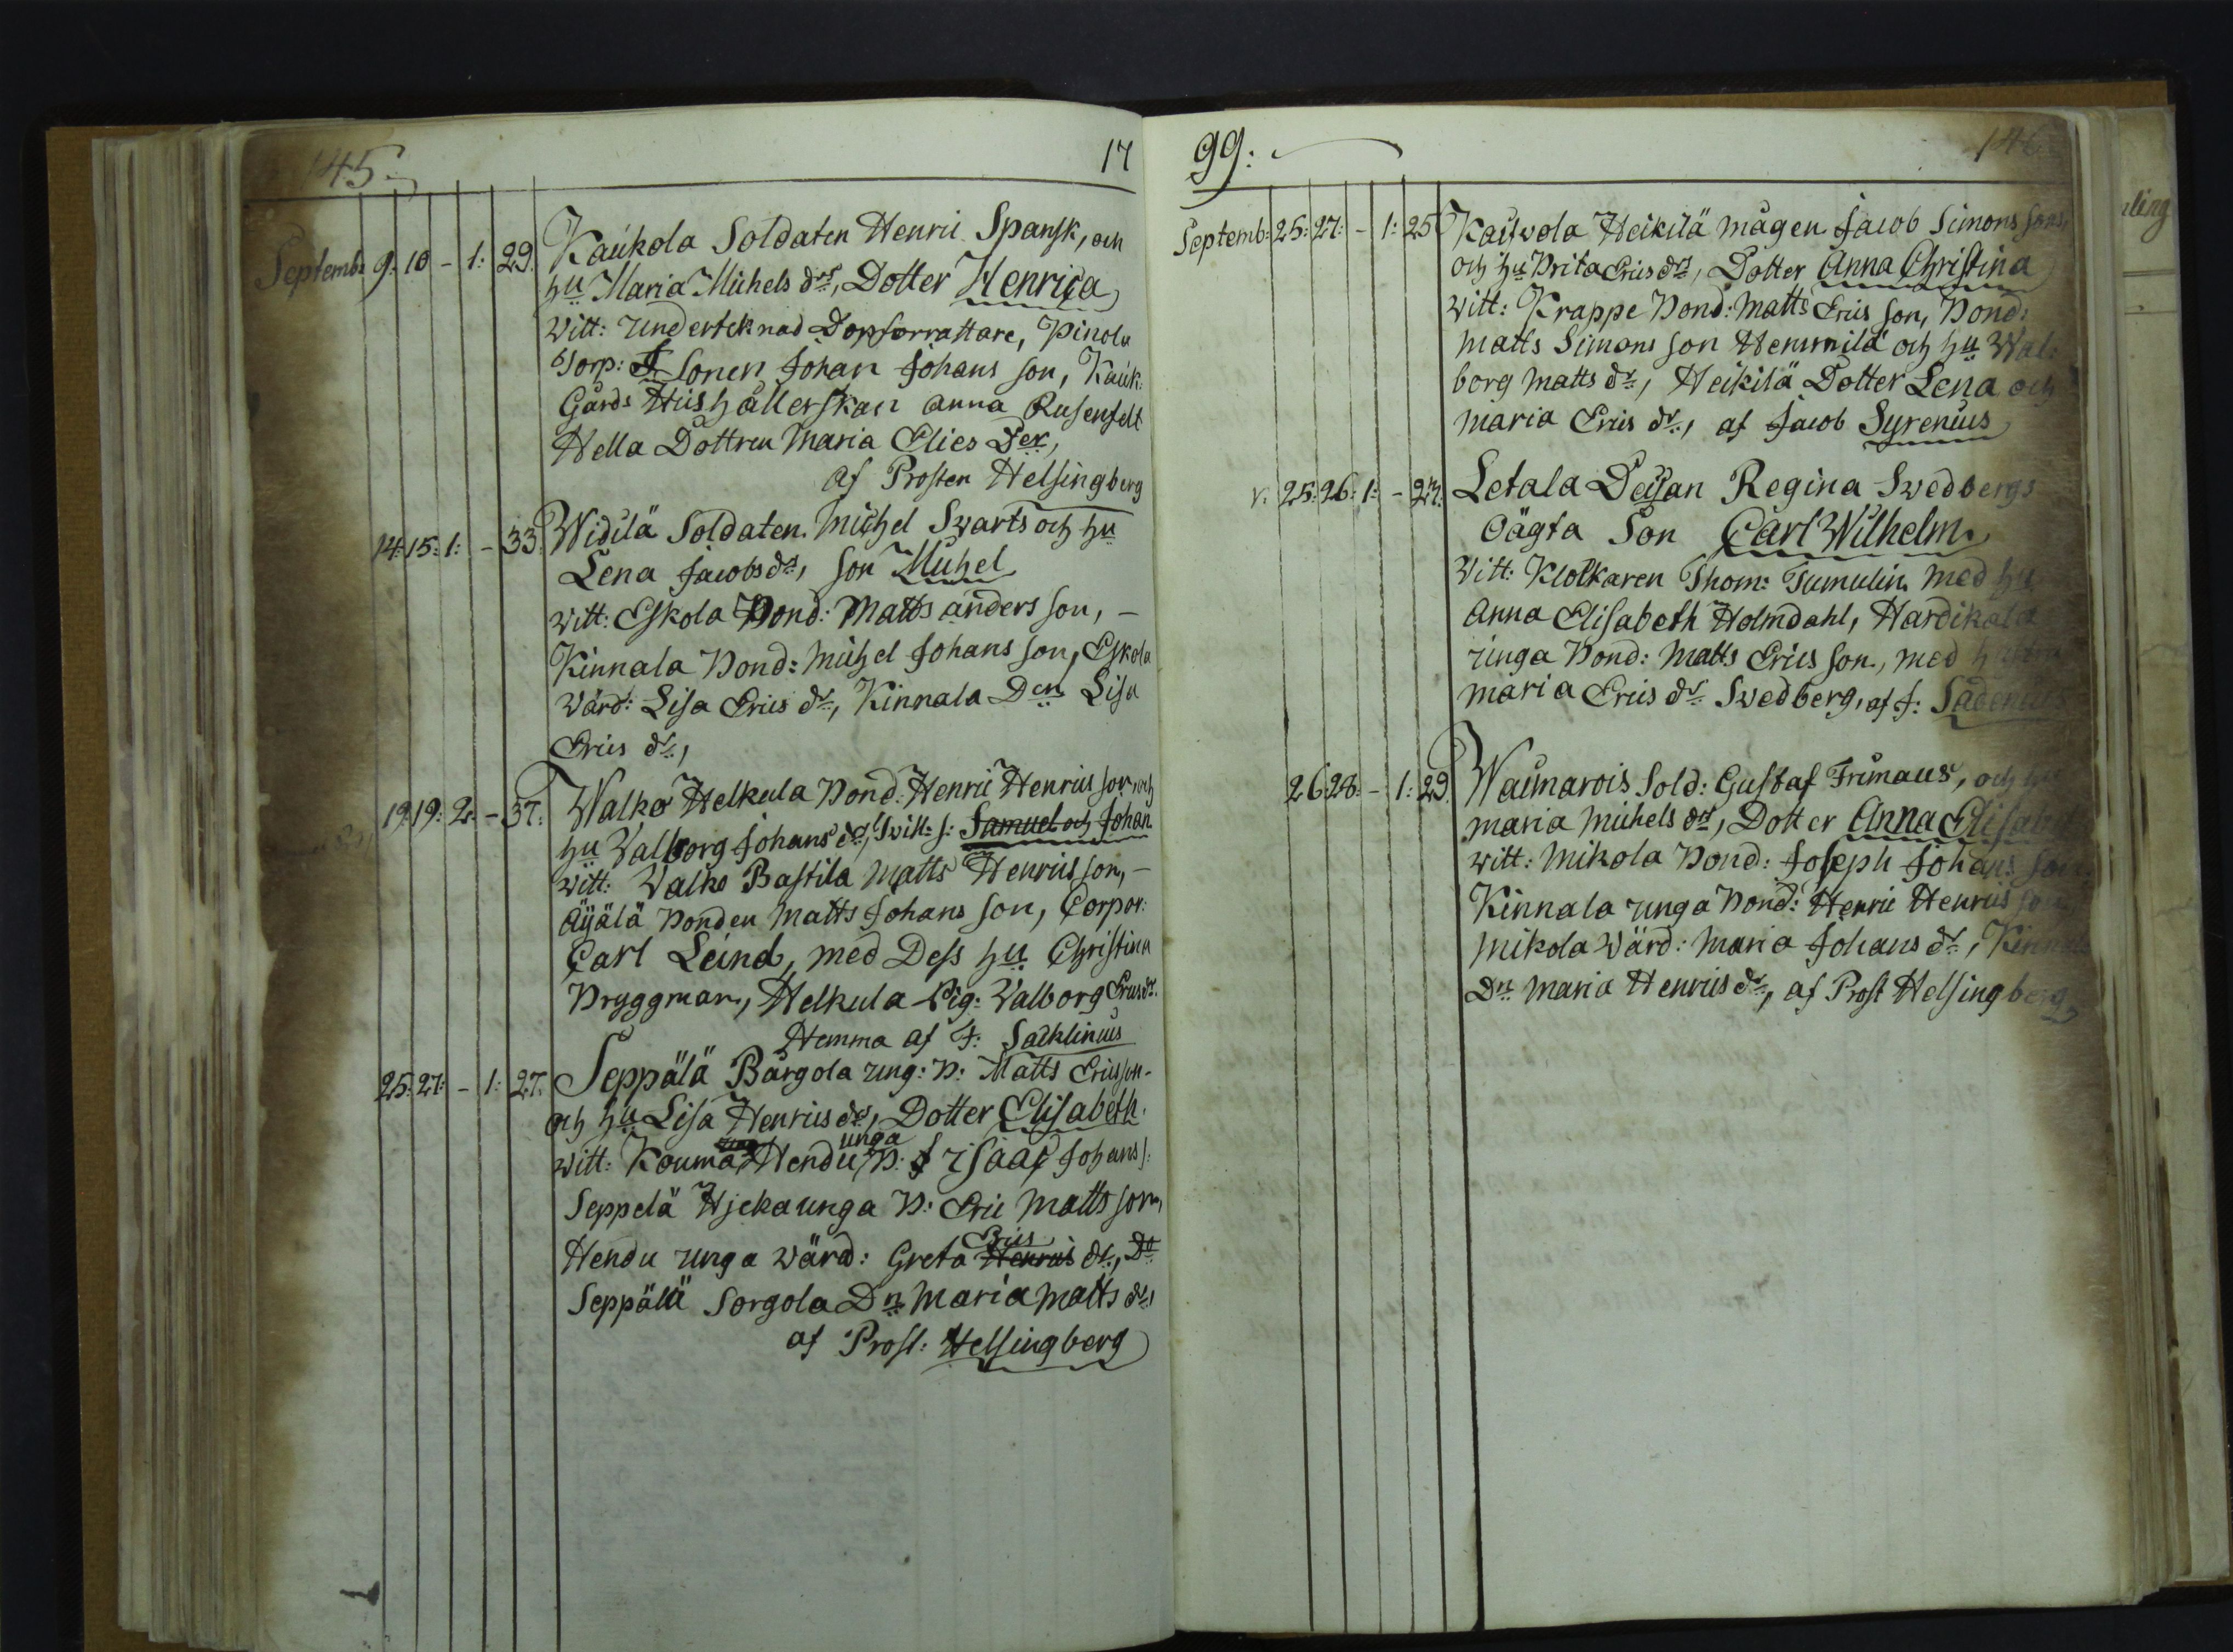 145.
17
Septemb: 9. 10 - 1: 29. Kaukola Soldaten Henric Spansk, och
hu Maria Michels dr, Dotter Henrica
Witt: underteknad Dopförrättare, Pinola
Torp: Sonen Johan Johans son, Kauk:
Gårds Hushållerskan Anna Rusenfelt
Hella Dottren Maria Elies Der,
af Prosten Helsingberg
14. 15: 1: - 33. Widilä Soldaten Michel Swarts och hu
Lena Jacobs dr, son Michel
Witt: Eskola Bond: Matts anders son, -
Kinnala Bond: Michel Johans son, Eskola
Wärd: Lisa Erics dr, Kinnala Den Lisa
Erics dr,
19. 19: 2. - 37. Walko Helkula Bond: Henric Henrics son, och
hu Valborg Johans dr, Twill: s: Samuel och Johan
Witt: Valko Bastila Matts Henrics son, -
Äyälä Bonden Matts Johans son, Corpor:
Carl Leind, med Dess hu Christina
Bryggman, Helkula Pig: Valborg Erics dr.
Hemma af F: Sacklinius
25. 27: - 1: 27. Seppälä Bårgola ung: B: Matts Ericsson-
och hu Lisa Henrics dr, Dotter Elisabeth.
unga
Witt: Kouma Hendu B: Isaac Johans s:
Seppelä Hjeka unga B: Eric Matts son,
Erics
Hendu unga Wärd: Greta Henrics dr,
Seppälä Sorgola Dn Maria Matts dr,
af Prost: Helsingberg
99:
146
Septemb: 25: 27: - 1: 25 Kaitvola Heikilä mågen Jacob Simons sons,
och hu Brita Erics dr, Dotter Anna Christina
Witt: Krappe Bond: Matts Erics son, Bond:
Matts Simons son Hemmilä och hu Wal:
borg Matts dr, Heikilä Dotter Lena och
Maria Erics dr, af Jacob Syrenius
v. 25: 26: 1: - 23. Letala Deijan Regina Swedbergs
Oägta Son Carl Wilhelm
Witt: Klockaren Thom: Tumulin med hu
Anna Elisabeth Holmdahl, Hardikala
unga Bond: Matts Erics son, med
Maria Erics dr Swedberg, af F:
26. 28. - 1: 29. Waumarois Sold: Gustaf Frimaus, och hu
Maria Michels dr, Dotter Anna Elisab
Witt: Mikola Bond: Joseph Johans son
Kinnala unga Bond: Henric Henrics so
Mikola Wärd: Maria Johans dr, Kinnala
Dn Maria Henrics dr, af Prost Helsingberg